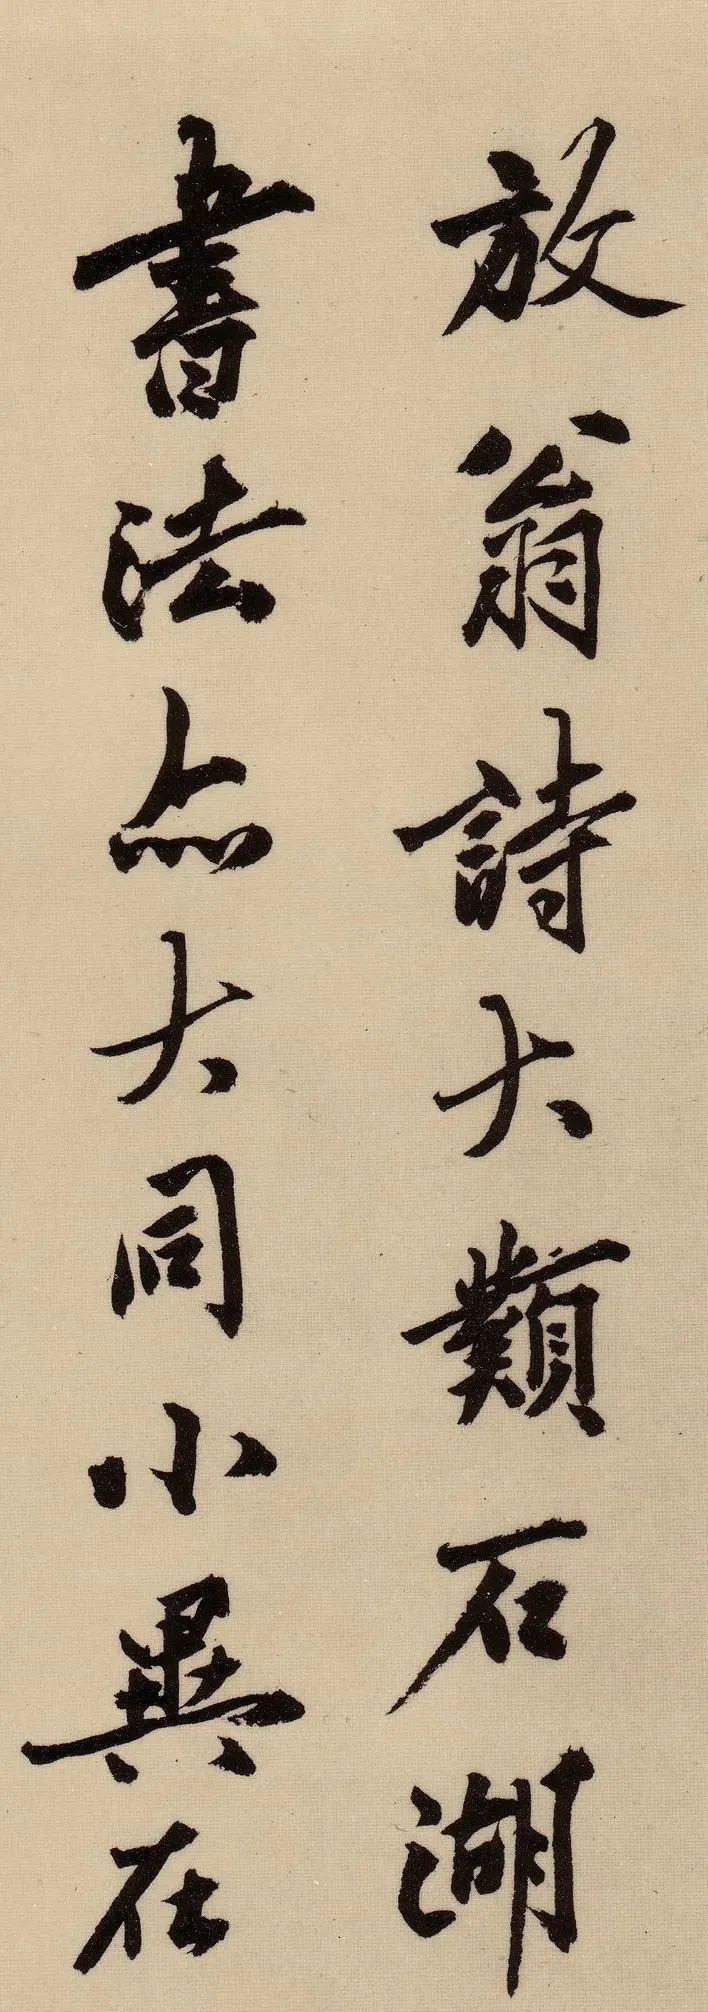 放翁詩大類石湖
書法亦大同小異在